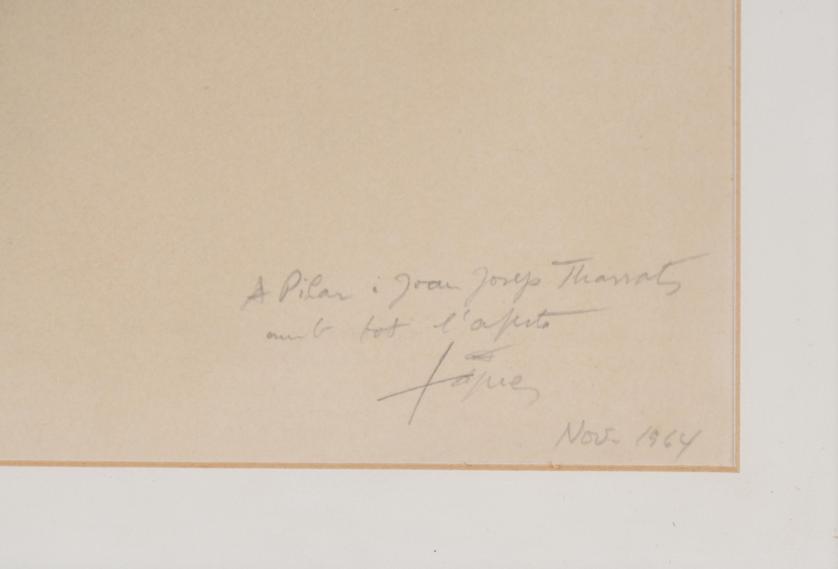 A Pilar i Joan Josep Tharrats
amb tot l'afecte
Tàpies
Nov. 1964